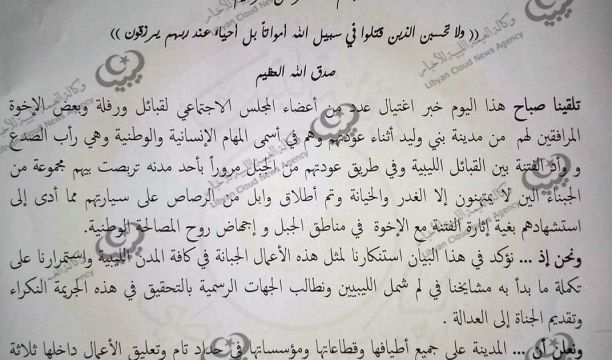 (( ولا تحسبن الذين قتلوا في سبيل الله أمواتاً بل أحياء عند ربهم يرزقون ))
صدق الله العظيم
تلقينا صباح هذا اليوم خبر اغتيال عدد من أعضاء المجلس الاجتماعي لقبائل ورفلة وبعض الإخوة
المرافقين لهم من مدينة بني وليد أثناء عودتهم وهم في أسمى المهام الإنسانية والوطنية وهي رأب الصدع
و وأد الفتنة بين القبائل الليبية وفي طريق عودتهم من الجبل مروراً بأحد مدنه تربصت بهم مجموعة من
الجبناء الين لا يمتهنون إلا الغدر والخيانة وتم أطلاق وابل من الرصاص على سيارتهم مما أدى إلى
استشهادهم بغية إثارة الفتنة مع الإخوة في مناطق الجبل و إجهاض روح المصالحة الوطنية.
ونحن إذ ... نؤكد في هذا البيان استنكارنا لمثل هذه الأعمال الجبانة في كافة المدن الليبية واستمرارنا على
تكملة ما بدأ به مشايخنا في لم شمل الليبيين ونطالب الجهات الرسمية بالتحقيق في هذه الجريمة النكراء
وتقديم الجناة إلى العدالة .
ونعلن أن ... المدينة على جميع أطيافها وقطاعاتها ومؤسساتها في حداد تام وتعليق الأعمال داخلها ثلاثة
وكالة الغيمة الليبية للأخبار
Libyan Cloud News Agency